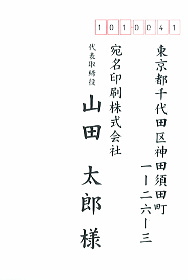 101-0041
東京都千代田区神田須田町
一ー二六ー三
宛名印刷株式会社
代表取締役
山田 太郎 様